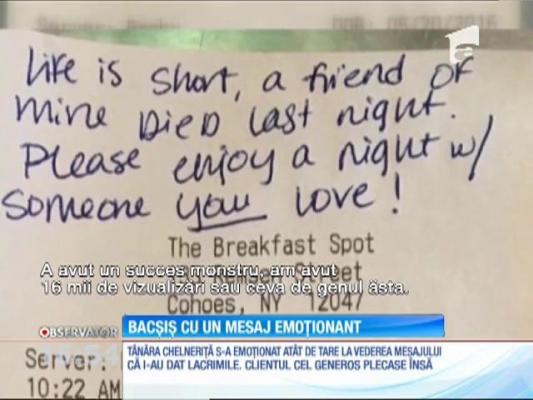 Life is short, a friend of
mine Died last night.
Please enjoy a night w/
someone you love!
The Breakfast Spot
Street
A avut un succes monstru, am avut
16 mii de vizualizări sau ceva de genul ăsta.
Cohoes, NY 12047
OBSERVATOR
BACȘIȘ CU UN MESAJ EMOȚIONANT
TÂNĂRA CHELNERIȚĂ S-A EMOȚIONAT ATÂT DE TARE LA VEDEREA MESAJULUI
CĂ I-AU DAT LACRIMILE. CLIENTUL CEL GENEROS PLECASE ÎNSĂ
Server:
10:22 AM